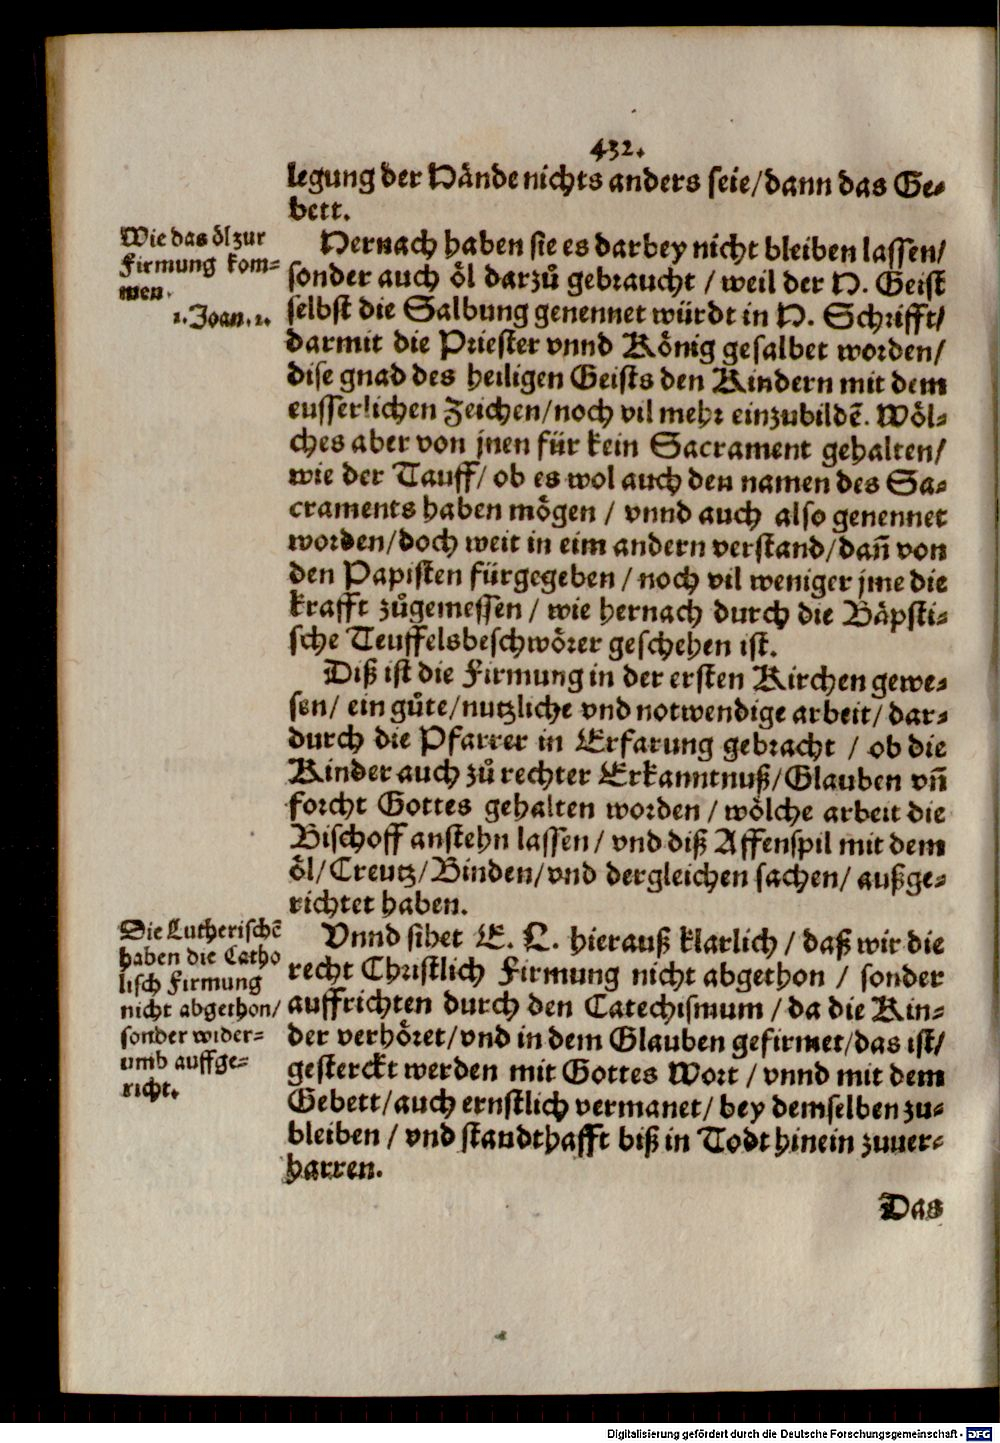 432.
legung der Hände nichts anders seie/dann das Ge-
bett.
Wie das öl zur
Firmung kom-
men.
1. Joan. 2.
Hernach haben sie es darbey nicht bleiben lassen/
sonder auch öl darzů gebraucht / weil der H. Geist
selbst die Salbung genennet würdt in H. Schrifft/
darmit die Priester vnnd König gesalbet worden/
dise gnad des heiligen Geists den Kindern mit dem
eusserlichen Zeichen/noch vil mehr einzubildẽ. Wöl-
ches aber von jnen für kein Sacrament gehalten/
wie der Tauff/ ob es wol auch den namen des Sa-
craments haben mögen / vnnd auch also genennet
worden/doch weit in eim andern verstand/dañ von
den Papisten fürgegeben / noch vil weniger jme die
krafft zůgemessen / wie hernach durch die Bäpsti-
sche Teuffelsbeschwörer geschehen ist.
Diß ist die Firmung in der ersten Kirchen gewe-
sen/ ein gůte/nutzliche vnd notwendige arbeit/ dar-
durch die Pfarrer in Erfarung gebracht / ob die
Kinder auch zů rechter Erkanntnuß/Glauben vñ
forcht Gottes gehalten worden / wölche arbeit die
Bischoff anstehn lassen / vnd diß Affenspil mit dem
öl/Creutz/Binden/vnd dergleichen sachen/ außge-
richtet haben.
Die Lutherischẽ
haben die Catho
lisch Firmung
nicht abgethon/
sonder wider-
umb auffge-
richt.
Vnnd sihet E. L. hierauß klarlich / daß wir die
recht Christlich Firmung nicht abgethon / sonder
auffrichten durch den Catechismum / da die Kin-
der verhöret/vnd in dem Glauben gefirmet/das ist/
gesterckt werden mit Gottes Wort / vnnd mit dem
Gebett/auch ernstlich vermanet/ bey demselben zu-
bleiben / vnd standthafft biß in Todt hinein zuuer-
harren.
Das
Digitalisierung gefördert durch die Deutsche Forschungsgemeinschaft - DFG